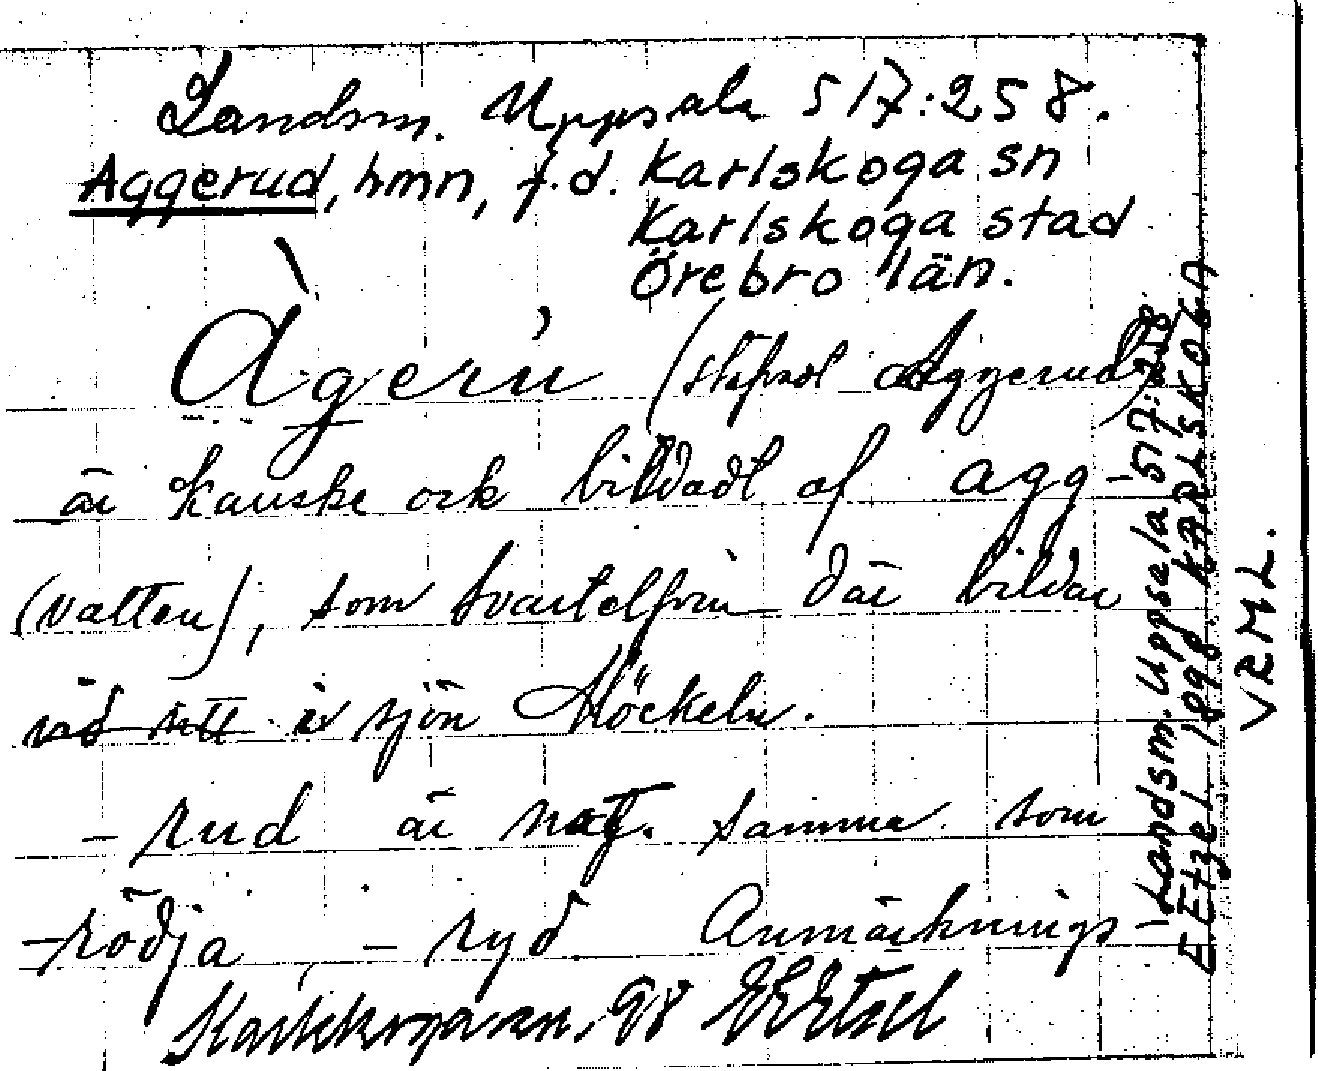 Landsm. Uppsala 517:258.
Aggerud, hmn, f.d. Karlskoga sn
Karlskoga stad
Örebro län.
Àgerú (skrfvdt Aggerud)
är kanske ock bildadt af agg-
(vatten), som Svartelfven där bildar
vid sitt i sjön Möckeln.
- rud är nog. samma som
-rödja, - ryd Anmärknings-
Karlskoga sn. 98 EEEtzel
Landsm. Uppsala 517:258
E.Etzel 1898. KARLSKOGA
VRML.